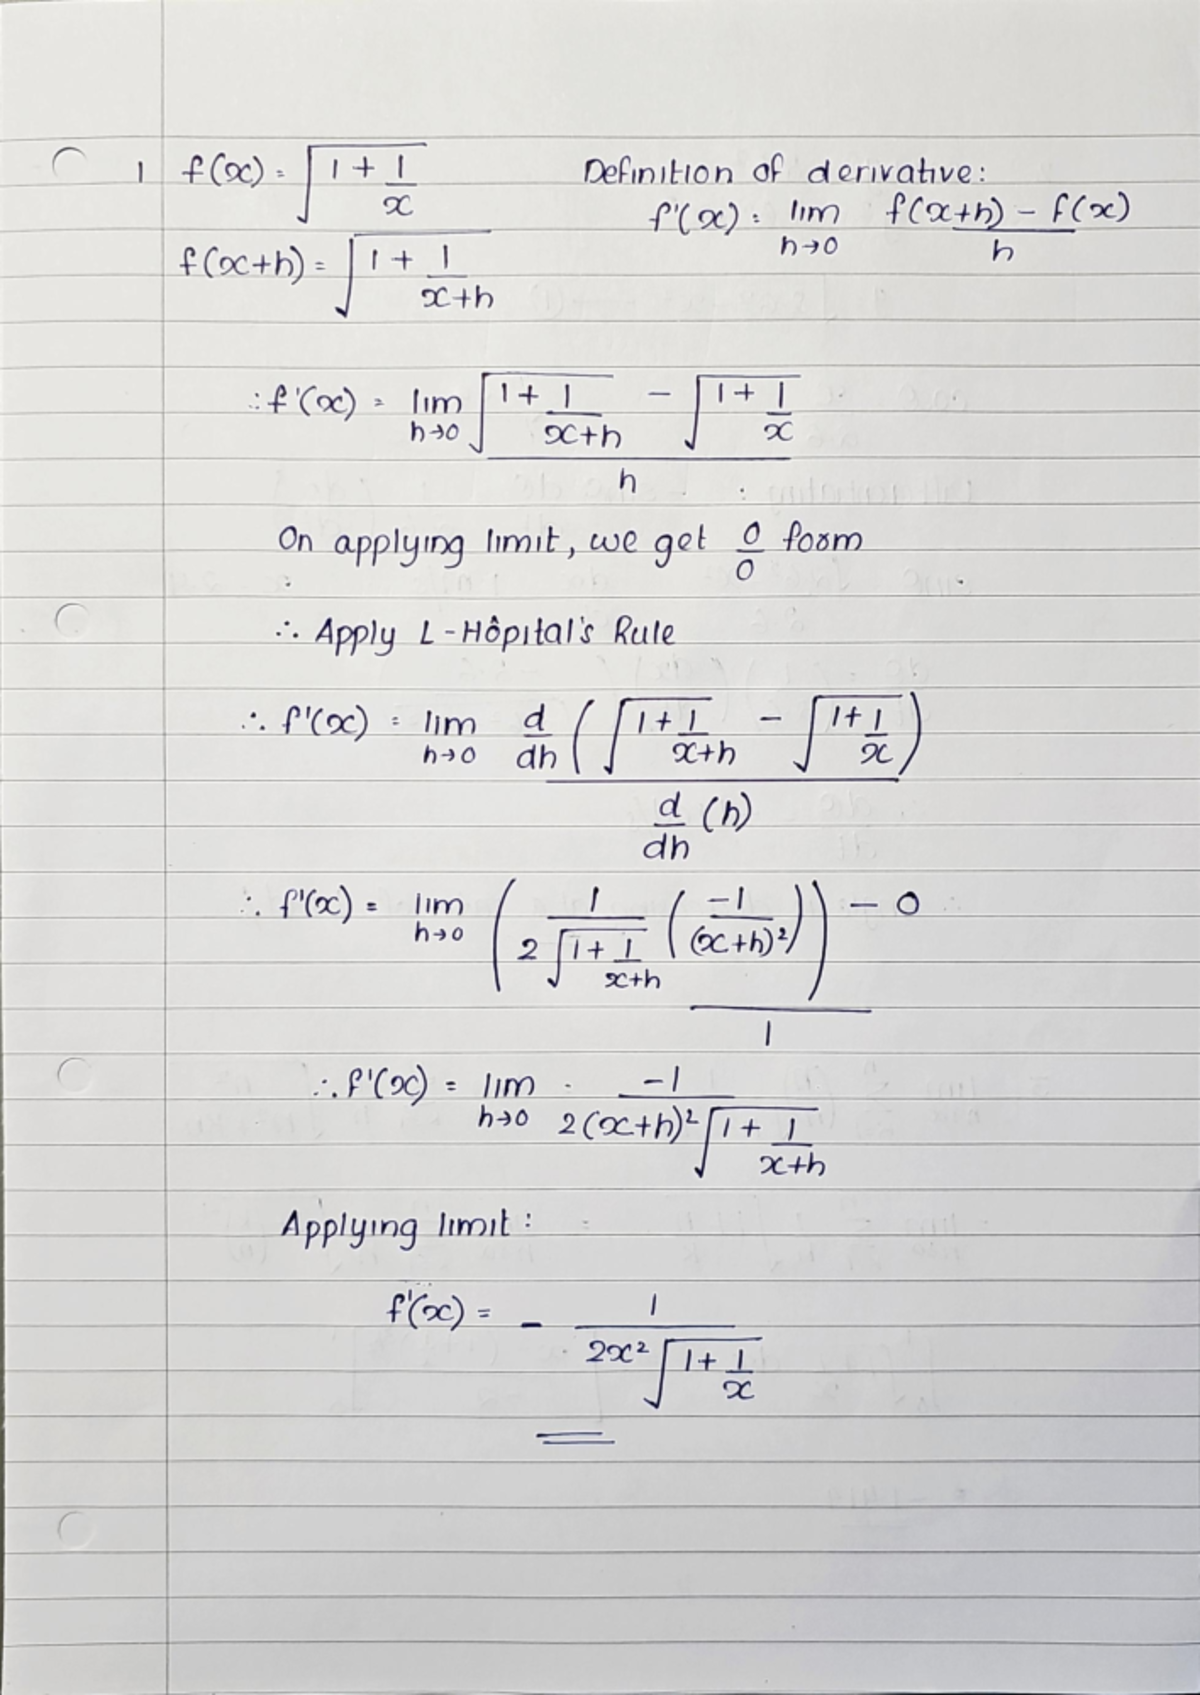 1 f(x) = √(1 + 1/x) Definition of derivative:
f'(x) = lim h→0 (f(x+h) - f(x))/h
f(x+h) = √(1 + 1/(x+h))
∴ f'(x) = lim h→0 (√(1 + 1/(x+h)) - √(1 + 1/x))/h
On applying limit, we get 0/0 form
∴ Apply L-Hôpital's Rule
∴ f'(x) = lim h→0 (d/dh (√(1 + 1/(x+h)) - √(1 + 1/x)))/(d/dh (h))
∴ f'(x) = lim h→0 ((1/(2√(1 + 1/(x+h))) (-1/(x+h)²)) - 0)/1
∴ f'(x) = lim h→0 -1/(2(x+h)²√(1 + 1/(x+h)))
Applying limit:
f'(x) = - 1/(2x²√(1 + 1/x))